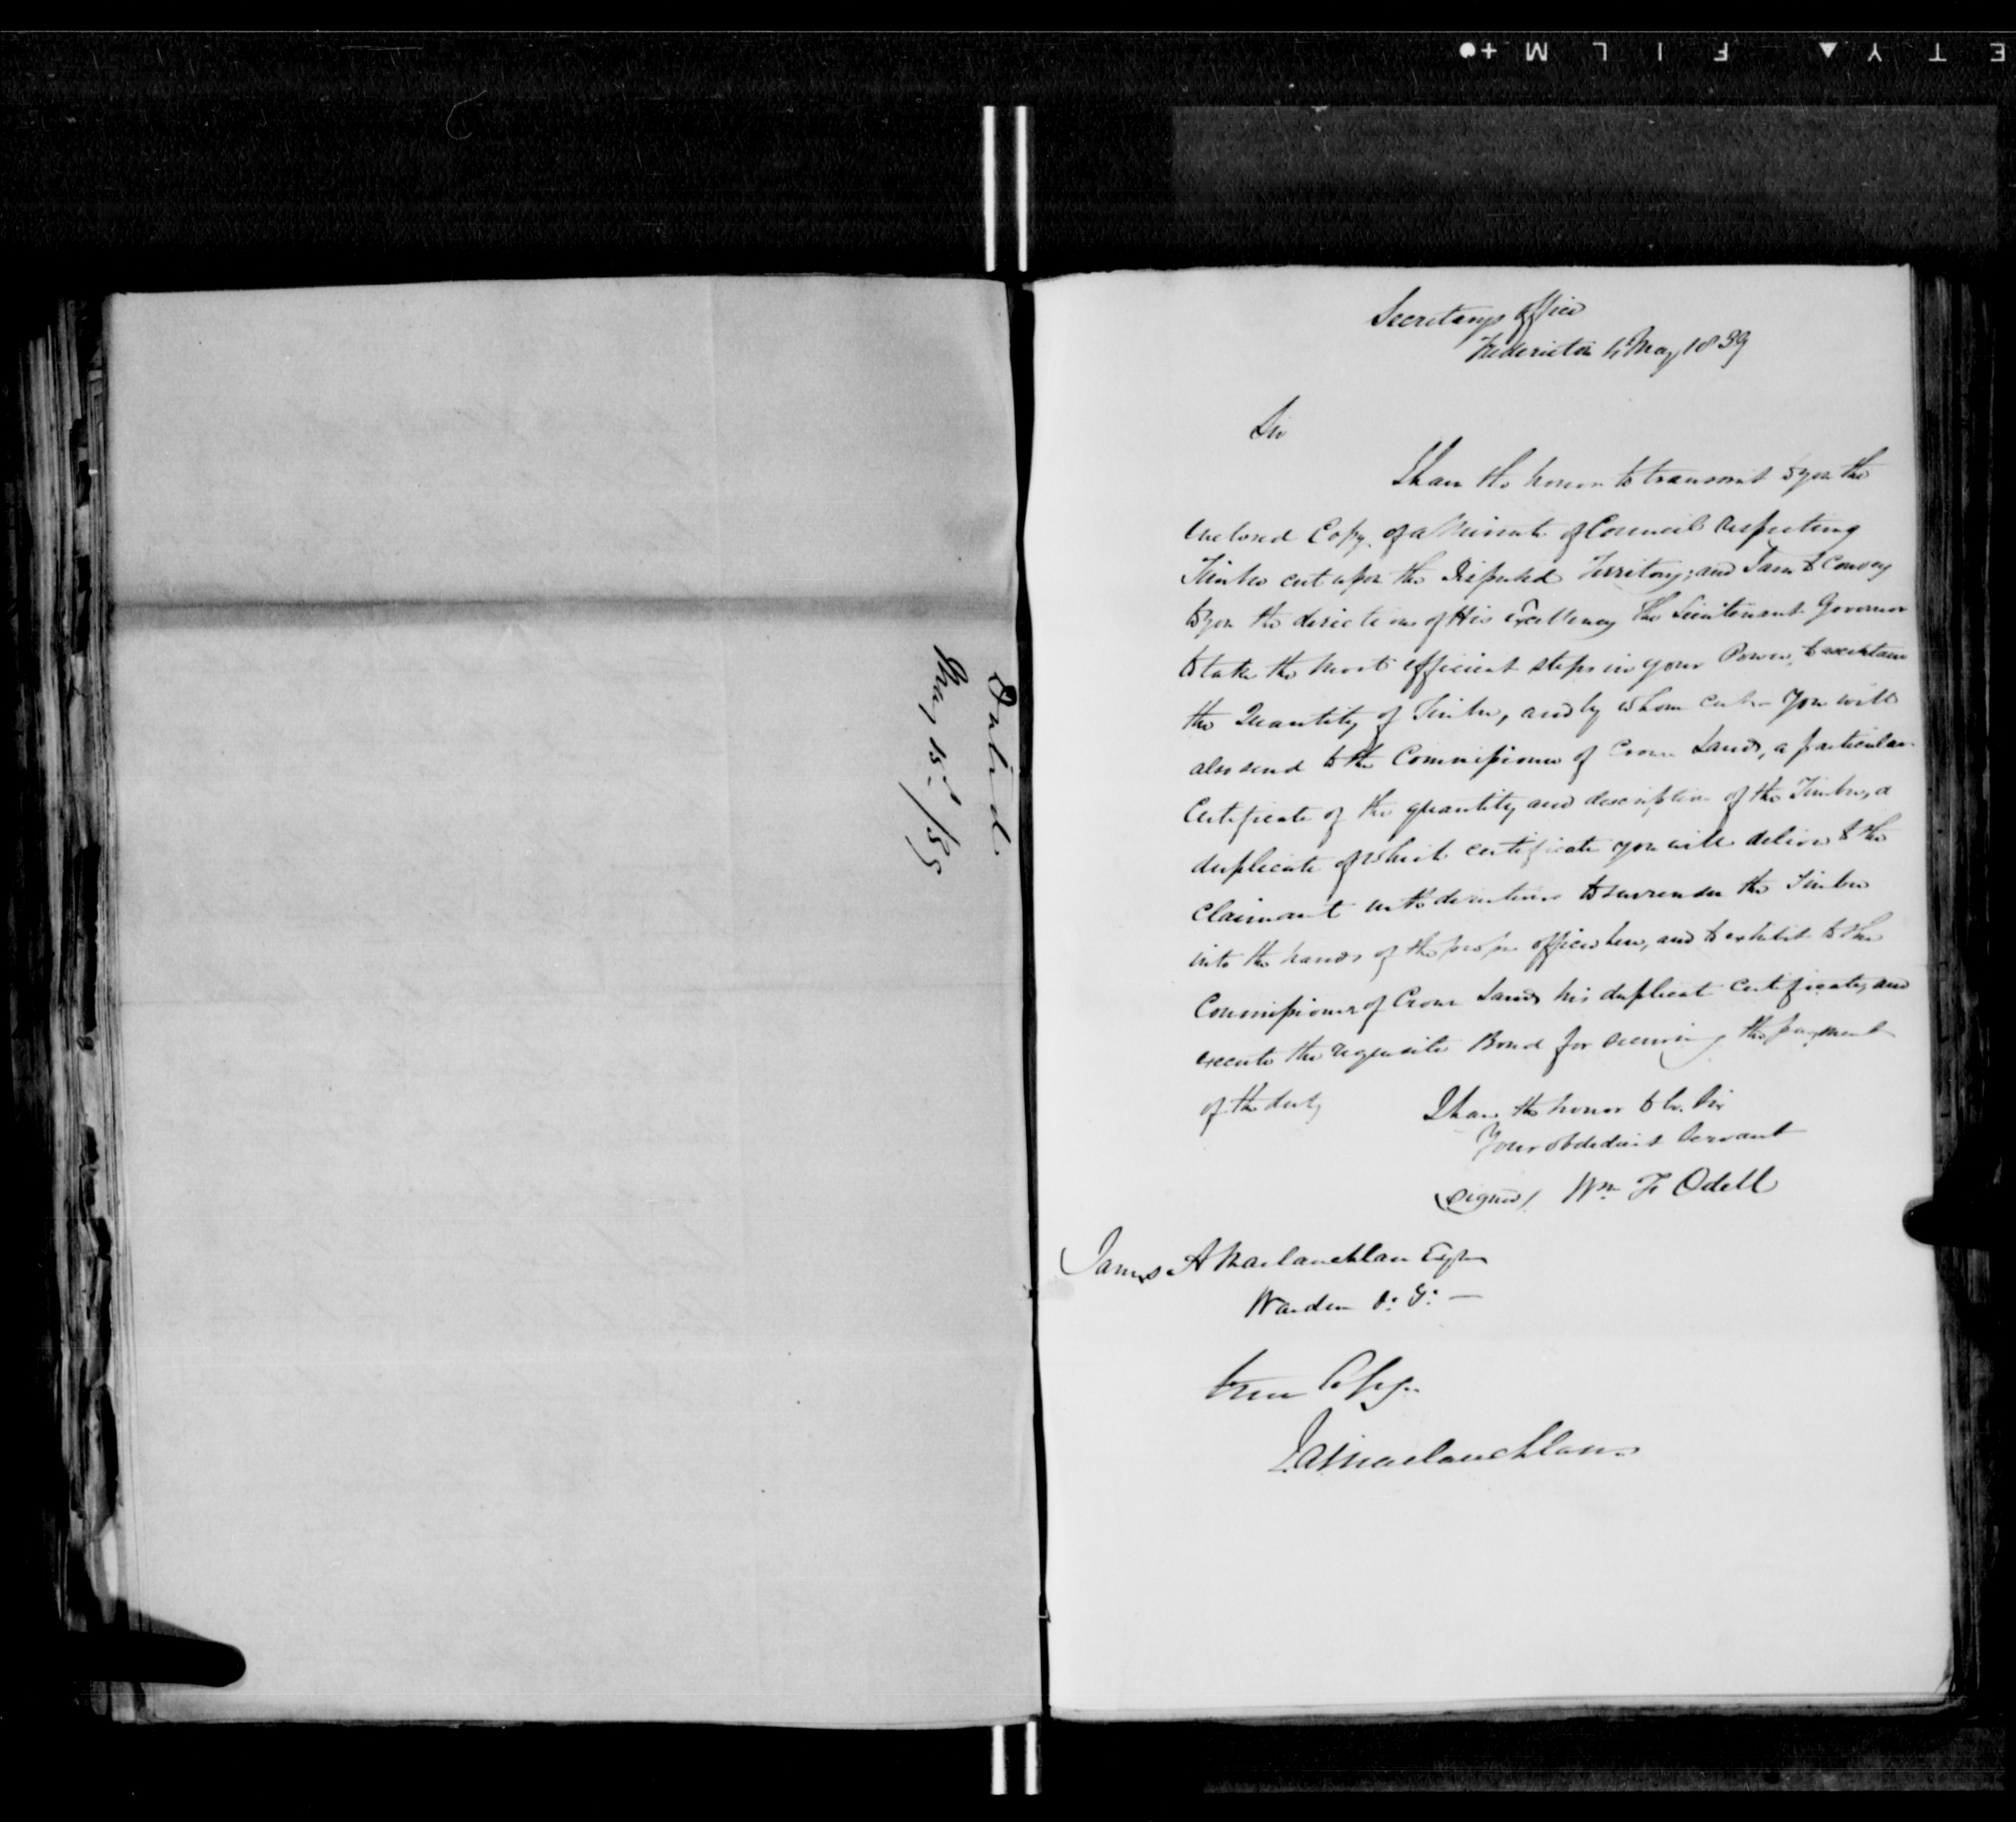 SAFETY FILM
May 15th/39
Secretarys office
Fredericton 4 May 1839
Sir
I have the honor to transmit to you the
enclosed Copy of a Minute of Council respecting
Timber cut upon the Disputed Territory; and I am to convey
to you the directions of His Excellency the Lieutenant Governor
to take the most efficient steps in your Power, to ascertain
the Quantity of Timber, and by whom cut. You will
also send to the Commissioner of Crown Lands, a particular
Certificate of the quantity and description of the Timber, a
duplicate of which certificate you will deliver to the
Claimant with directions to surrender the Timber
into the hands of the proper officer here, and to exhibit to the
Commissioner of Crown Lands his duplicate Certificate, and
execute the requisite Bond for securing the payment
of the duty
I have the honor to be, Sir
Your obedient Servant
(signed) Wm F Odell
James A Maclauchlan Esqr
Warden
true Copy
J.A Maclauchlan